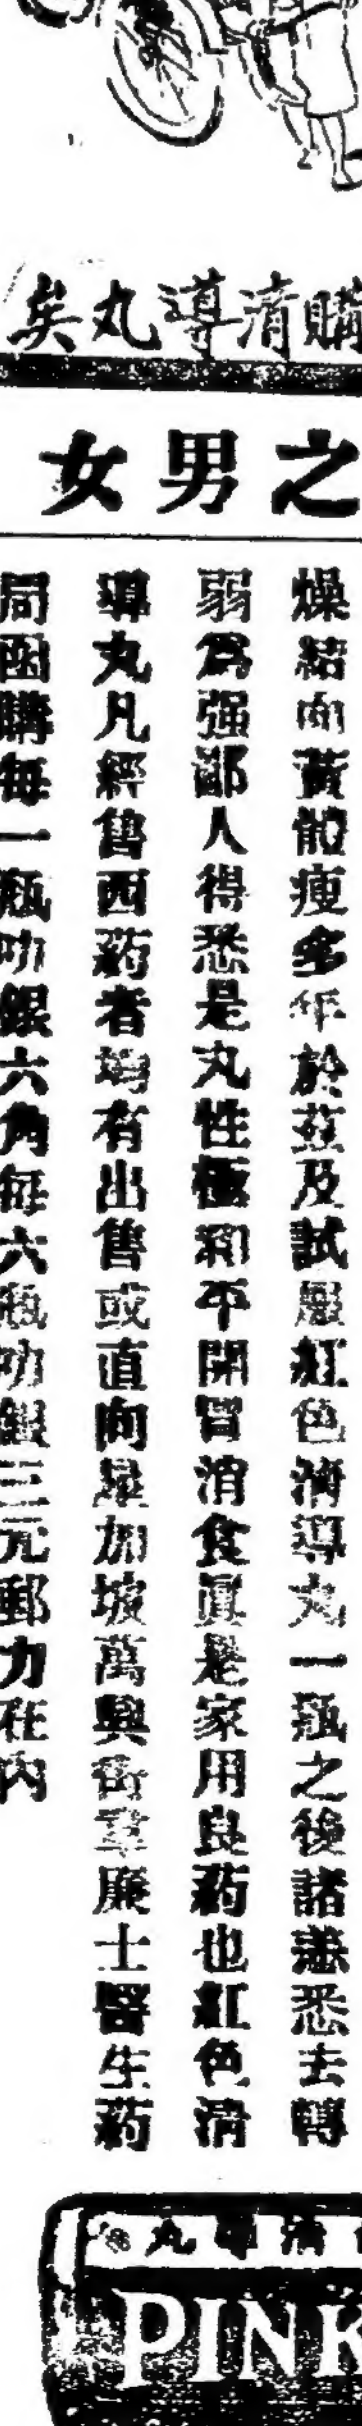 購清導丸矣
之男女
燥結向黃體瘦多年於茲及試服紅色清導丸一瓶之後諸恙悉去轉
弱為强鄙人得悉是丸性極和平開胃消食眞是家用良葯也紅色清
導丸凡經售西葯者均有出售或直向星加坡萬興街韋廉士醫生葯
局函購每一瓶叻銀六角每六瓶叻銀三元郵力在內
清導丸
PINK